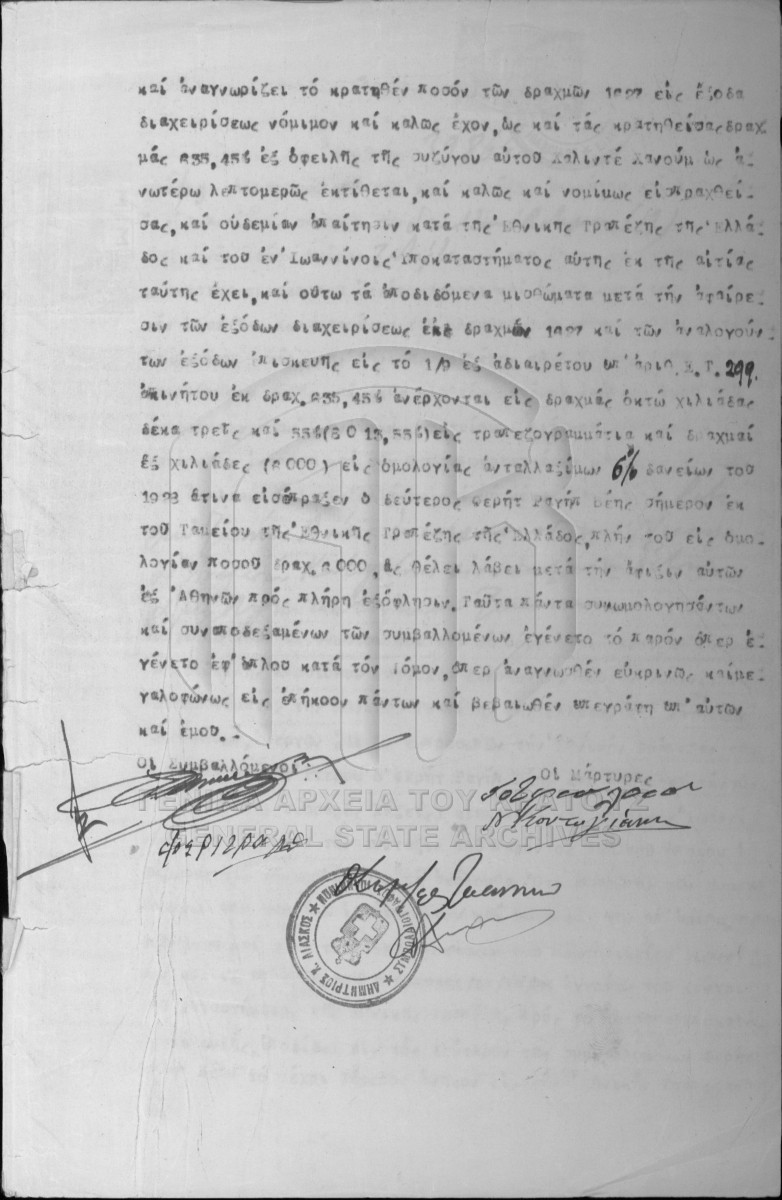 καί ἀναγνωρίζει τό κρατηθέν ποσόν τῶν δραχμῶν 1927 εἰς ἔξοδα
διαχειρίσεως νόμιμον καί καλῶς ἔχον, ὡς καί τάς κρατηθείσας δραχ
μάς 235,45% ἐξ ὀφειλῆς τῆς συζύγου αὐτοῦ Χαλιντέ Χανούμ ὡς ἀ-
νωτέρω λεπτομερῶς ἐκτίθεται, καί καλῶς καί νομίμως εἰσπραχθεί-
σας, καί οὐδεμίαν ἀπαίτησιν κατά τῆς Ἐθνικῆς Τραπέζης τῆς Ἑλλά-
δος καί τοῦ ἐν Ἰωαννίνοις Ὑποκαταστήματος αὐτῆς ἐκ τῆς αἰτίας
ταύτης ἔχει, καί οὕτω τά ἀποδιδόμενα μισθώματα μετά τήν ἀφαίρε-
σιν τῶν ἐξόδων διαχειρίσεως ἐκ δραχμῶν 1927 καί τῶν ἀναλογούν-
των ἐξόδων ἐπισκευῆς εἰς τό ἐξ ἀδιαιρέτου ὑπ' ἀριθ. Ε.Τ. 299.
ἀκινήτου ἐκ δραχ. 235,45% ἀνέρχονται εἰς δραχμάς ὀκτώ χιλιάδας
δέκα τρεῖς καί 55% (8013,55%) εἰς τραπεζογραμμάτια καί δραχμαί
ἕξ χιλιάδες (6000) εἰς ὁμολογίας ἀνταλλαξίμων 6% δανείων τοῦ
1923 ἅτινα εἰσέπραξεν ὁ δεύτερος Φερήτ Ραγήπ Βέης σήμερον ἐκ
τοῦ Ταμείου τῆς Ἐθνικῆς Τραπέζης τῆς Ἑλλάδος, πλήν τοῦ εἰς ὁμο-
λογίαν ποσοῦ δραχ. 6000, ἅς θέλει λάβει μετά τήν ἄφιξιν αὐτῶν
ἐξ Ἀθηνῶν πρός πλήρη ἐξόφλησιν. Ταῦτα πάντα συνωμολογησάντων
καί συναποδεξαμένων τῶν συμβαλλομένων ἐγένετο τό παρόν ὅπερ ἐ-
γένετο ἐφ' ἁπλοῦ κατά τόν Νόμον, ὅπερ ἀναγνωσθέν εὐκρινῶς καί με-
γαλοφώνως εἰς ἐπήκοον πάντων καί βεβαιωθέν ὑπεγράφη ὑπ' αὐτῶν
καί ἐμοῦ.
Οἱ Συμβαλλόμενοι
Οἱ Μάρτυρες
ΓΕΝΙΚΑ ΑΡΧΕΙΑ ΤΟΥ ΚΡΑΤΟΥΣ
GENERAL STATE ARCHIVES
ΔΗΜΗΤΡΙΟΣ Κ. ΛΙΑΣΚΟΣ